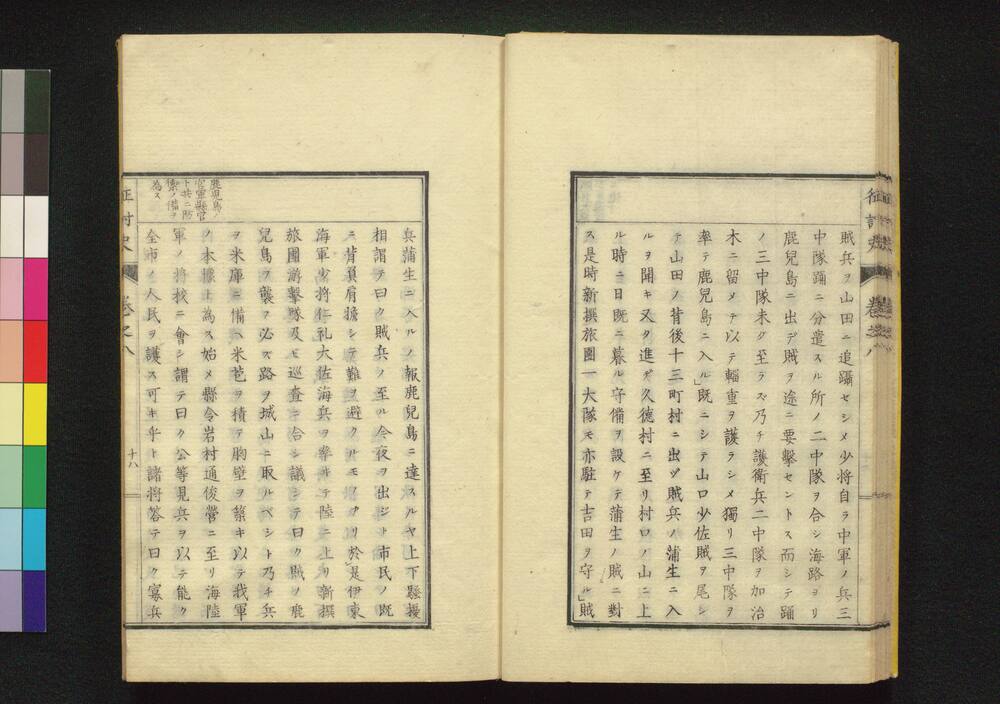 賊兵ヲ山田ニ追躡セシメ少将自ラ中軍ノ兵三
中隊踊ニ分遣スル所ノ二中隊ヲ合シ海路ヨリ
鹿兒島ニ出デ賊ヲ途ニ要擊セントス而シテ踊
ノ三中隊未タ至ラズ乃チ護衛兵二中隊ヲ加治
木ニ留メテ以テ輜重ヲ護ラシメ獨リ三中隊ヲ
率テ鹿兒島ニ入ル」既ニシテ山口少佐賊ヲ尾シ
テ山田ノ背後十三町村ニ出ヅ賊兵ノ蒲生ニ入
ルヲ聞キ又タ進デ久德村ニ至リ村口ノ山ニ上
ル時ニ日既ニ暮ル守備ヲ設ケテ蒲生ノ賊ニ對
ス是時新撰旅團一大隊モ亦駐テ吉田ヲ守ル」賊
征討史
卷之八
鹿兒島ノ
官軍縣官
ト共ニ防
禦ノ備ヲ
為ス
兵蒲生ニ入ルノ報鹿兒島ニ達スルヤ上下騷擾
相謂テ曰ク賊兵ノ至ル今夜ヲ出ジト市民ノ既
ニ背負肩擔シテ難ヲ避クルモノアリ於是伊東
海軍少将仁礼大佐海兵ヲ率ヰテ陸ニ上リ新撰
旅團游擊隊及ヒ巡査ニ合シ議シテ曰ク賊ノ鹿
兒島ヲ襲フ必ス路ヲ城山ニ取ルベシト乃チ兵
ヲ米庫ニ備ヘ米苞ヲ積テ胸壁ヲ築キ以テ我軍
ノ本據ト為ス始メ縣令岩村通俊營ニ至リ海陸
軍ノ将校ニ會シ謂テ曰ク公等見兵ヲ以テ能ク
全市ノ人民ヲ護ス可キ乎ト諸将答テ曰ク寡兵
征討史
卷之八
十八